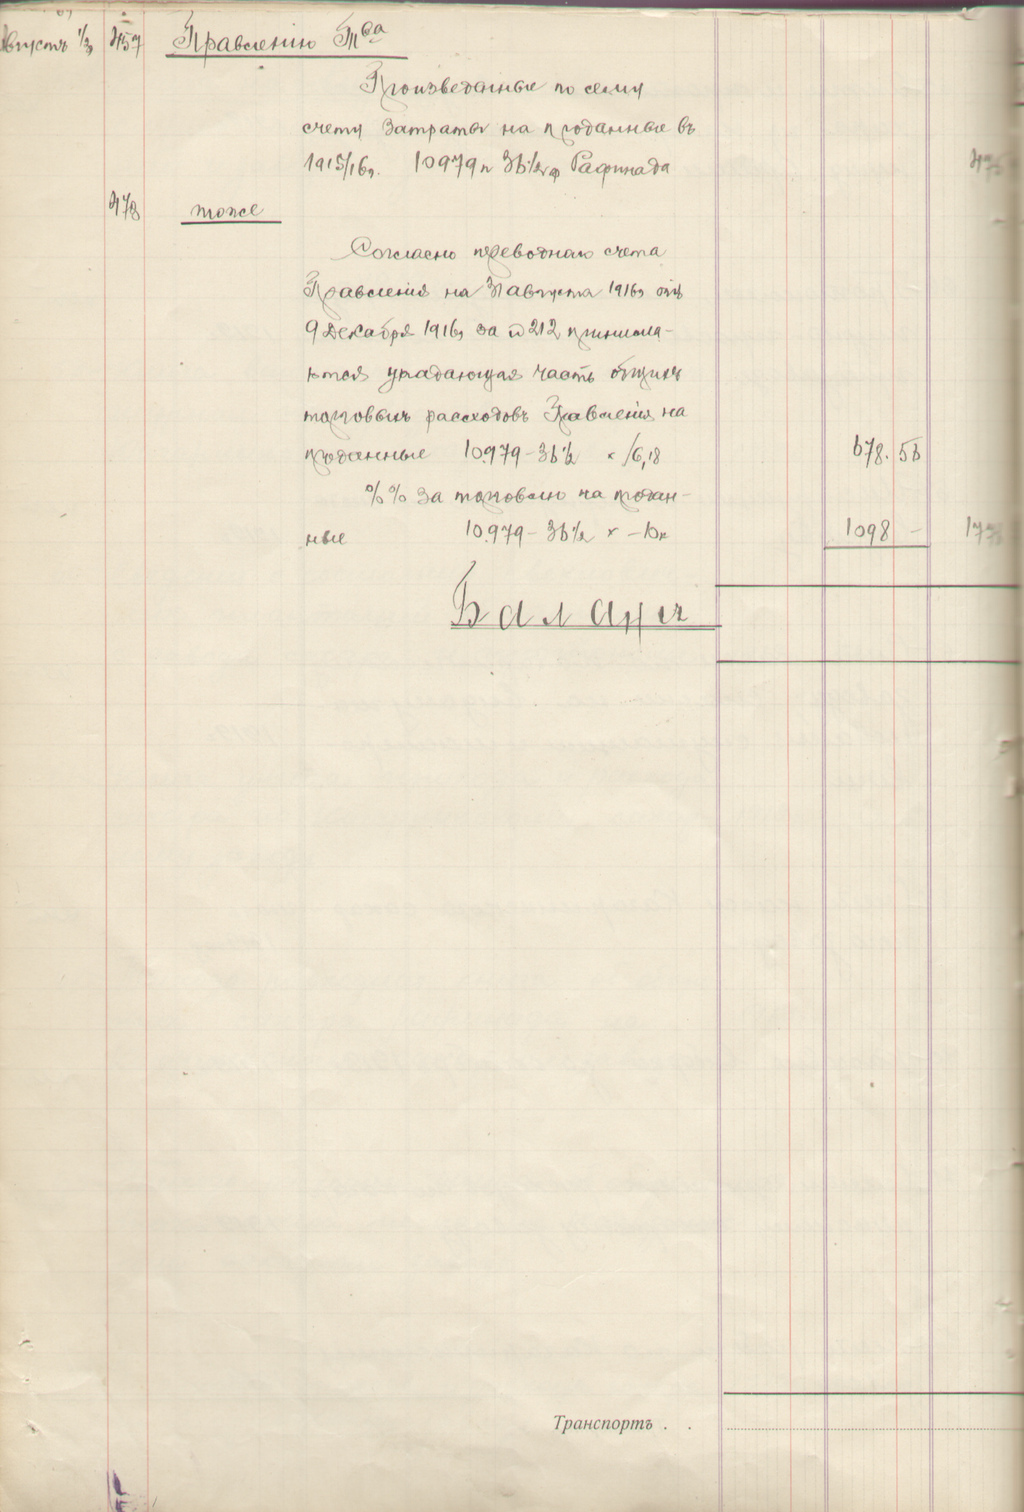 Августъ 1/31 457 Правленію Тва
Произведенные по сему
счету затраты на проданные въ
1915/16г. 10979п 36½ф Рафинада
478 тоже
Согласно переводнаго счета
Правленія на 31 августа 1916г отъ
9 Декабря 1916г за № 212 причисля-
ются упадающая часть общихъ
торговыхъ расходовъ Правленія на
проданные 10.979-36½ х /6,18 678. 56
%% За торговлю на продан-
ные 10.979-36½ х -10к 1098 -
Балансъ
Транспортъ . .